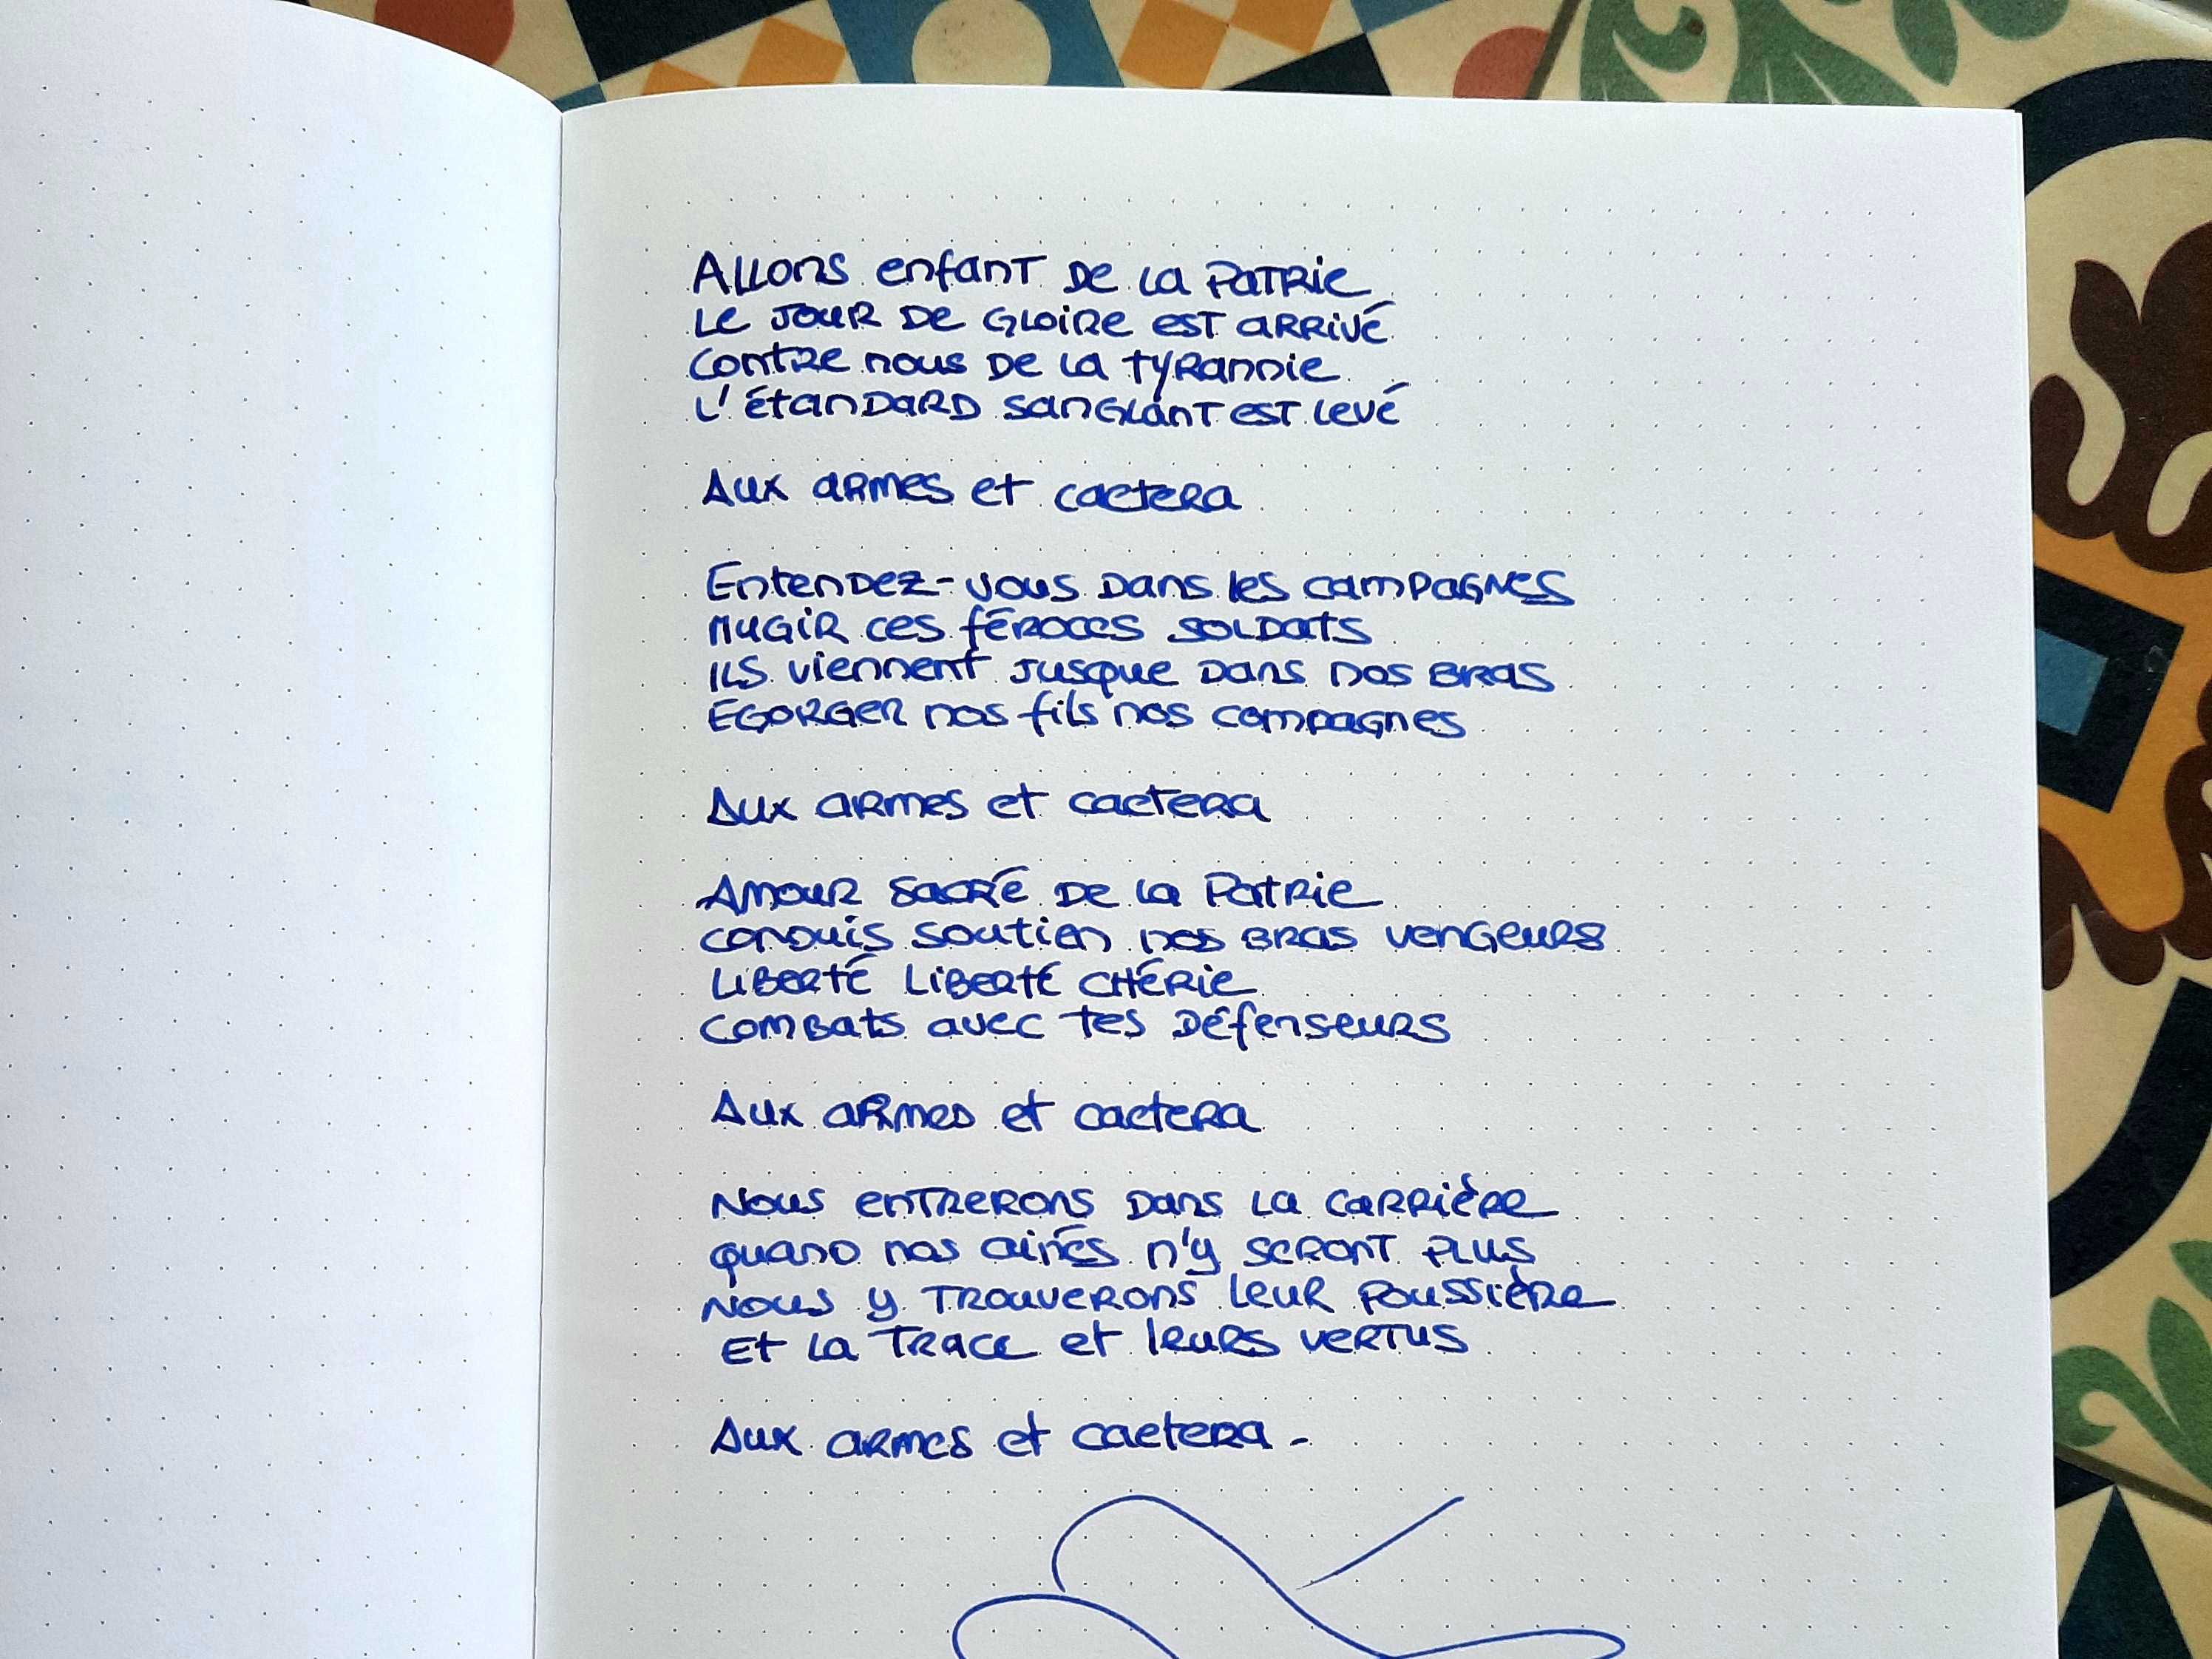 Allons enfant de la Patrie
Le jour de gloire est arrivé
Contre nous de la tyrannie
L'étandard sanglant est levé
Aux armes et caetera
Entendez-vous dans les campagnes
Mugir ces féroces soldats
Ils viennent jusque dans nos bras
Egorger nos fils nos compagnes
Aux armes et caetera
Amour sacré de la Patrie
Conduis soutien nos bras vengeurs
Liberté Liberté chérie
Combats avec tes défenseurs
Aux armes et caetera
Nous entrerons dans la carrière
quand nos ainés n'y seront plus
Nous y trouverons leur poussière
Et la trace et leurs vertus
Aux armes et caetera -